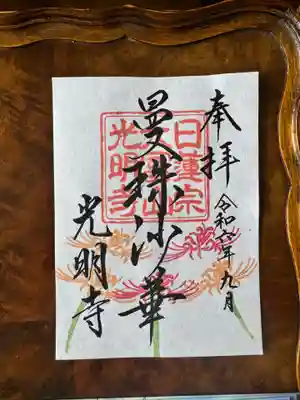 奉拝
令和六年九月
曼珠沙華
日蓮宗
光明寺
光明寺